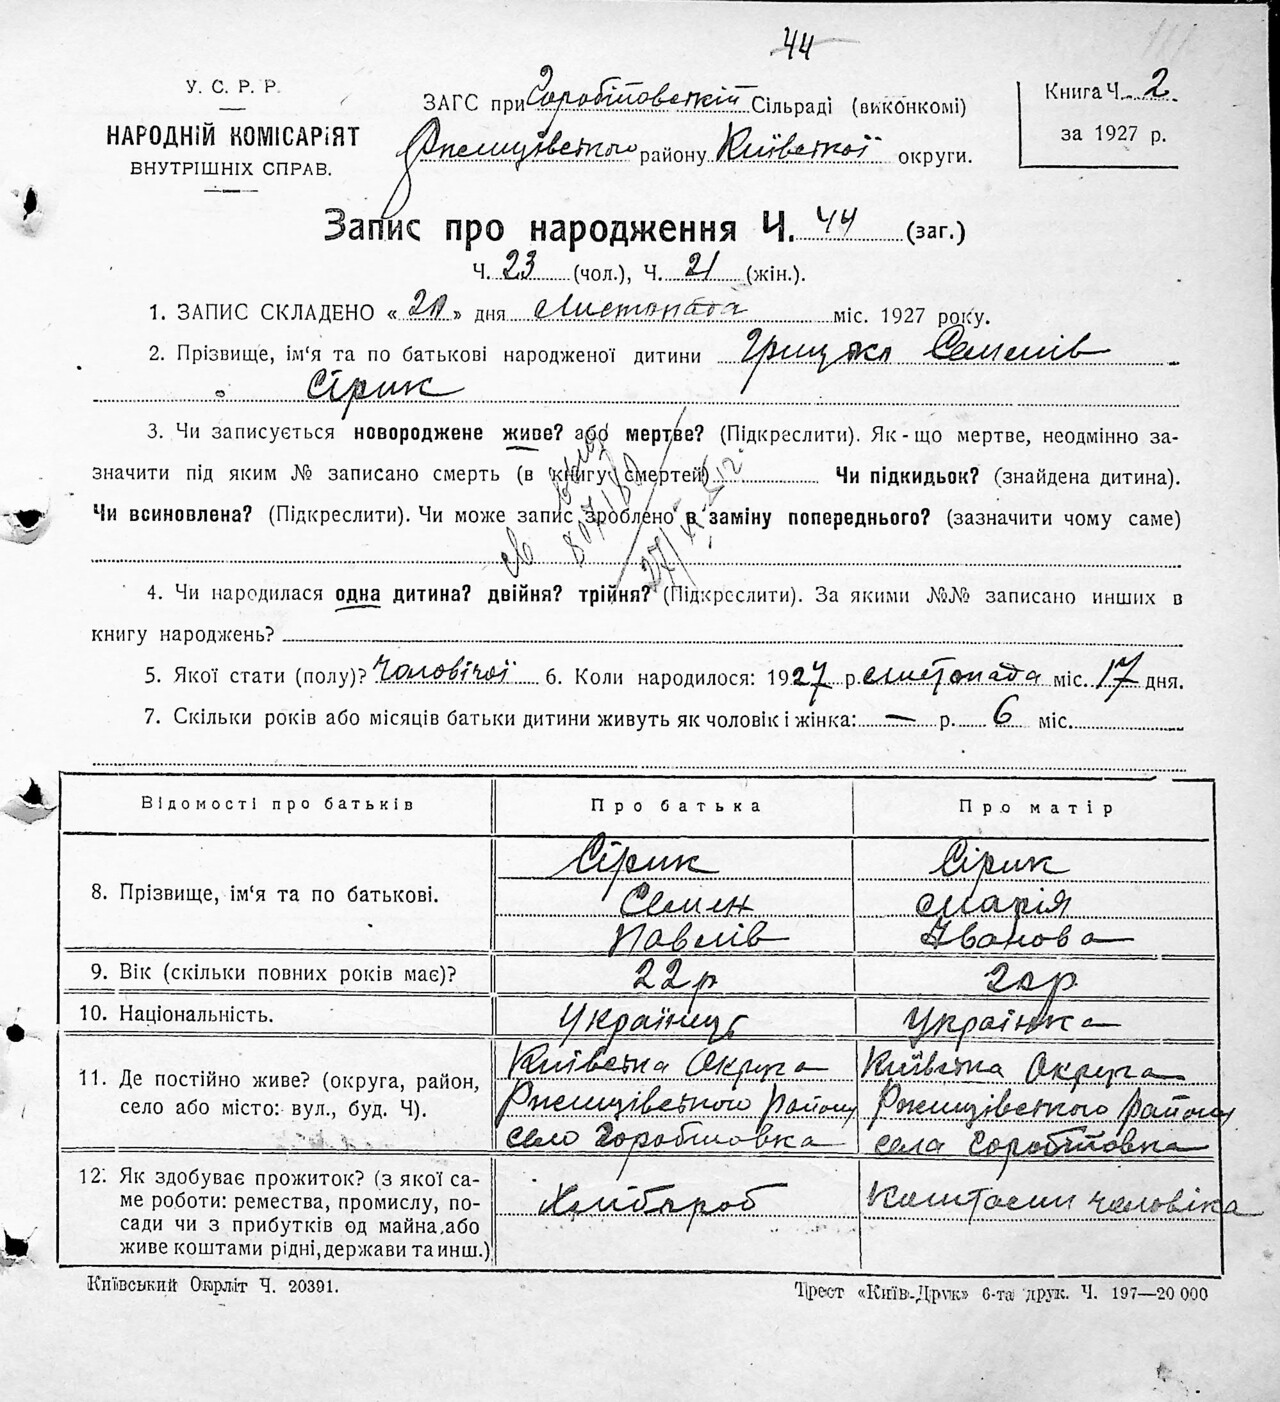 44
У. С. Р. Р.
НАРОДНІЙ КОМІСАРІЯТ
ВНУТРІШНІХ СПРАВ.
ЗАГС при Горобіївській Сільраді (виконкомі)
Ржищівського району Київської округи.
Книга Ч. 2.
за 1927 р.
Запис про народження Ч. 44 (заг.)
Ч. 23 (чол.), Ч. 21 (жін.).
1. ЗАПИС СКЛАДЕНО « » дня Листопада міс. 1927 року.
2. Прізвище, ім'я та по батькові народженої дитини Грицько Семенів
Сірик
3. Чи записується новороджене живе? або мертве? (Підкреслити). Як-що мертве, неодмінно за-
значити під яким № записано смерть (в книгу смертей) Чи підкидьок? (знайдена дитина).
Чи всиновлена? (Підкреслити). Чи може запис зроблено в заміну попереднього? (зазначити чому саме)
4. Чи народилася одна дитина? двійня? трійня? (Підкреслити). За якими №№ записано инших в
книгу народжень?
5. Якої стати (полу)? Чоловічої 6. Коли народилося: 1927 р. листопада міс. 17 дня.
7. Скільки років або місяців батьки дитини живуть як чоловік і жінка: — р. 6 міс.
Відомості про батьків Про батька Про матір
8. Прізвище, ім'я та по батькові.
Сірик Сірик
Семен Марія
Павлів Іванова
9. Вік (скільки повних років має)? 22р
10. Національність. Українць Українка
11. Де постійно живе? (округа, район,
село або місто: вул., буд. Ч).
Київська Округа Київська Округа
Ржищівського району Ржищівського району
село Горобіївка села Горобіївка
12. Як здобуває прожиток? (з якої са-
ме роботи: ремества, промислу, по-
сади чи з прибутків од майна, або
живе коштами рідні, держави та инш.)
Хлібороб Коштами чоловіка
Київський Окрліт Ч. 20391.
Трест «Київ-Друк» 6-та друк. Ч. 197—20 000